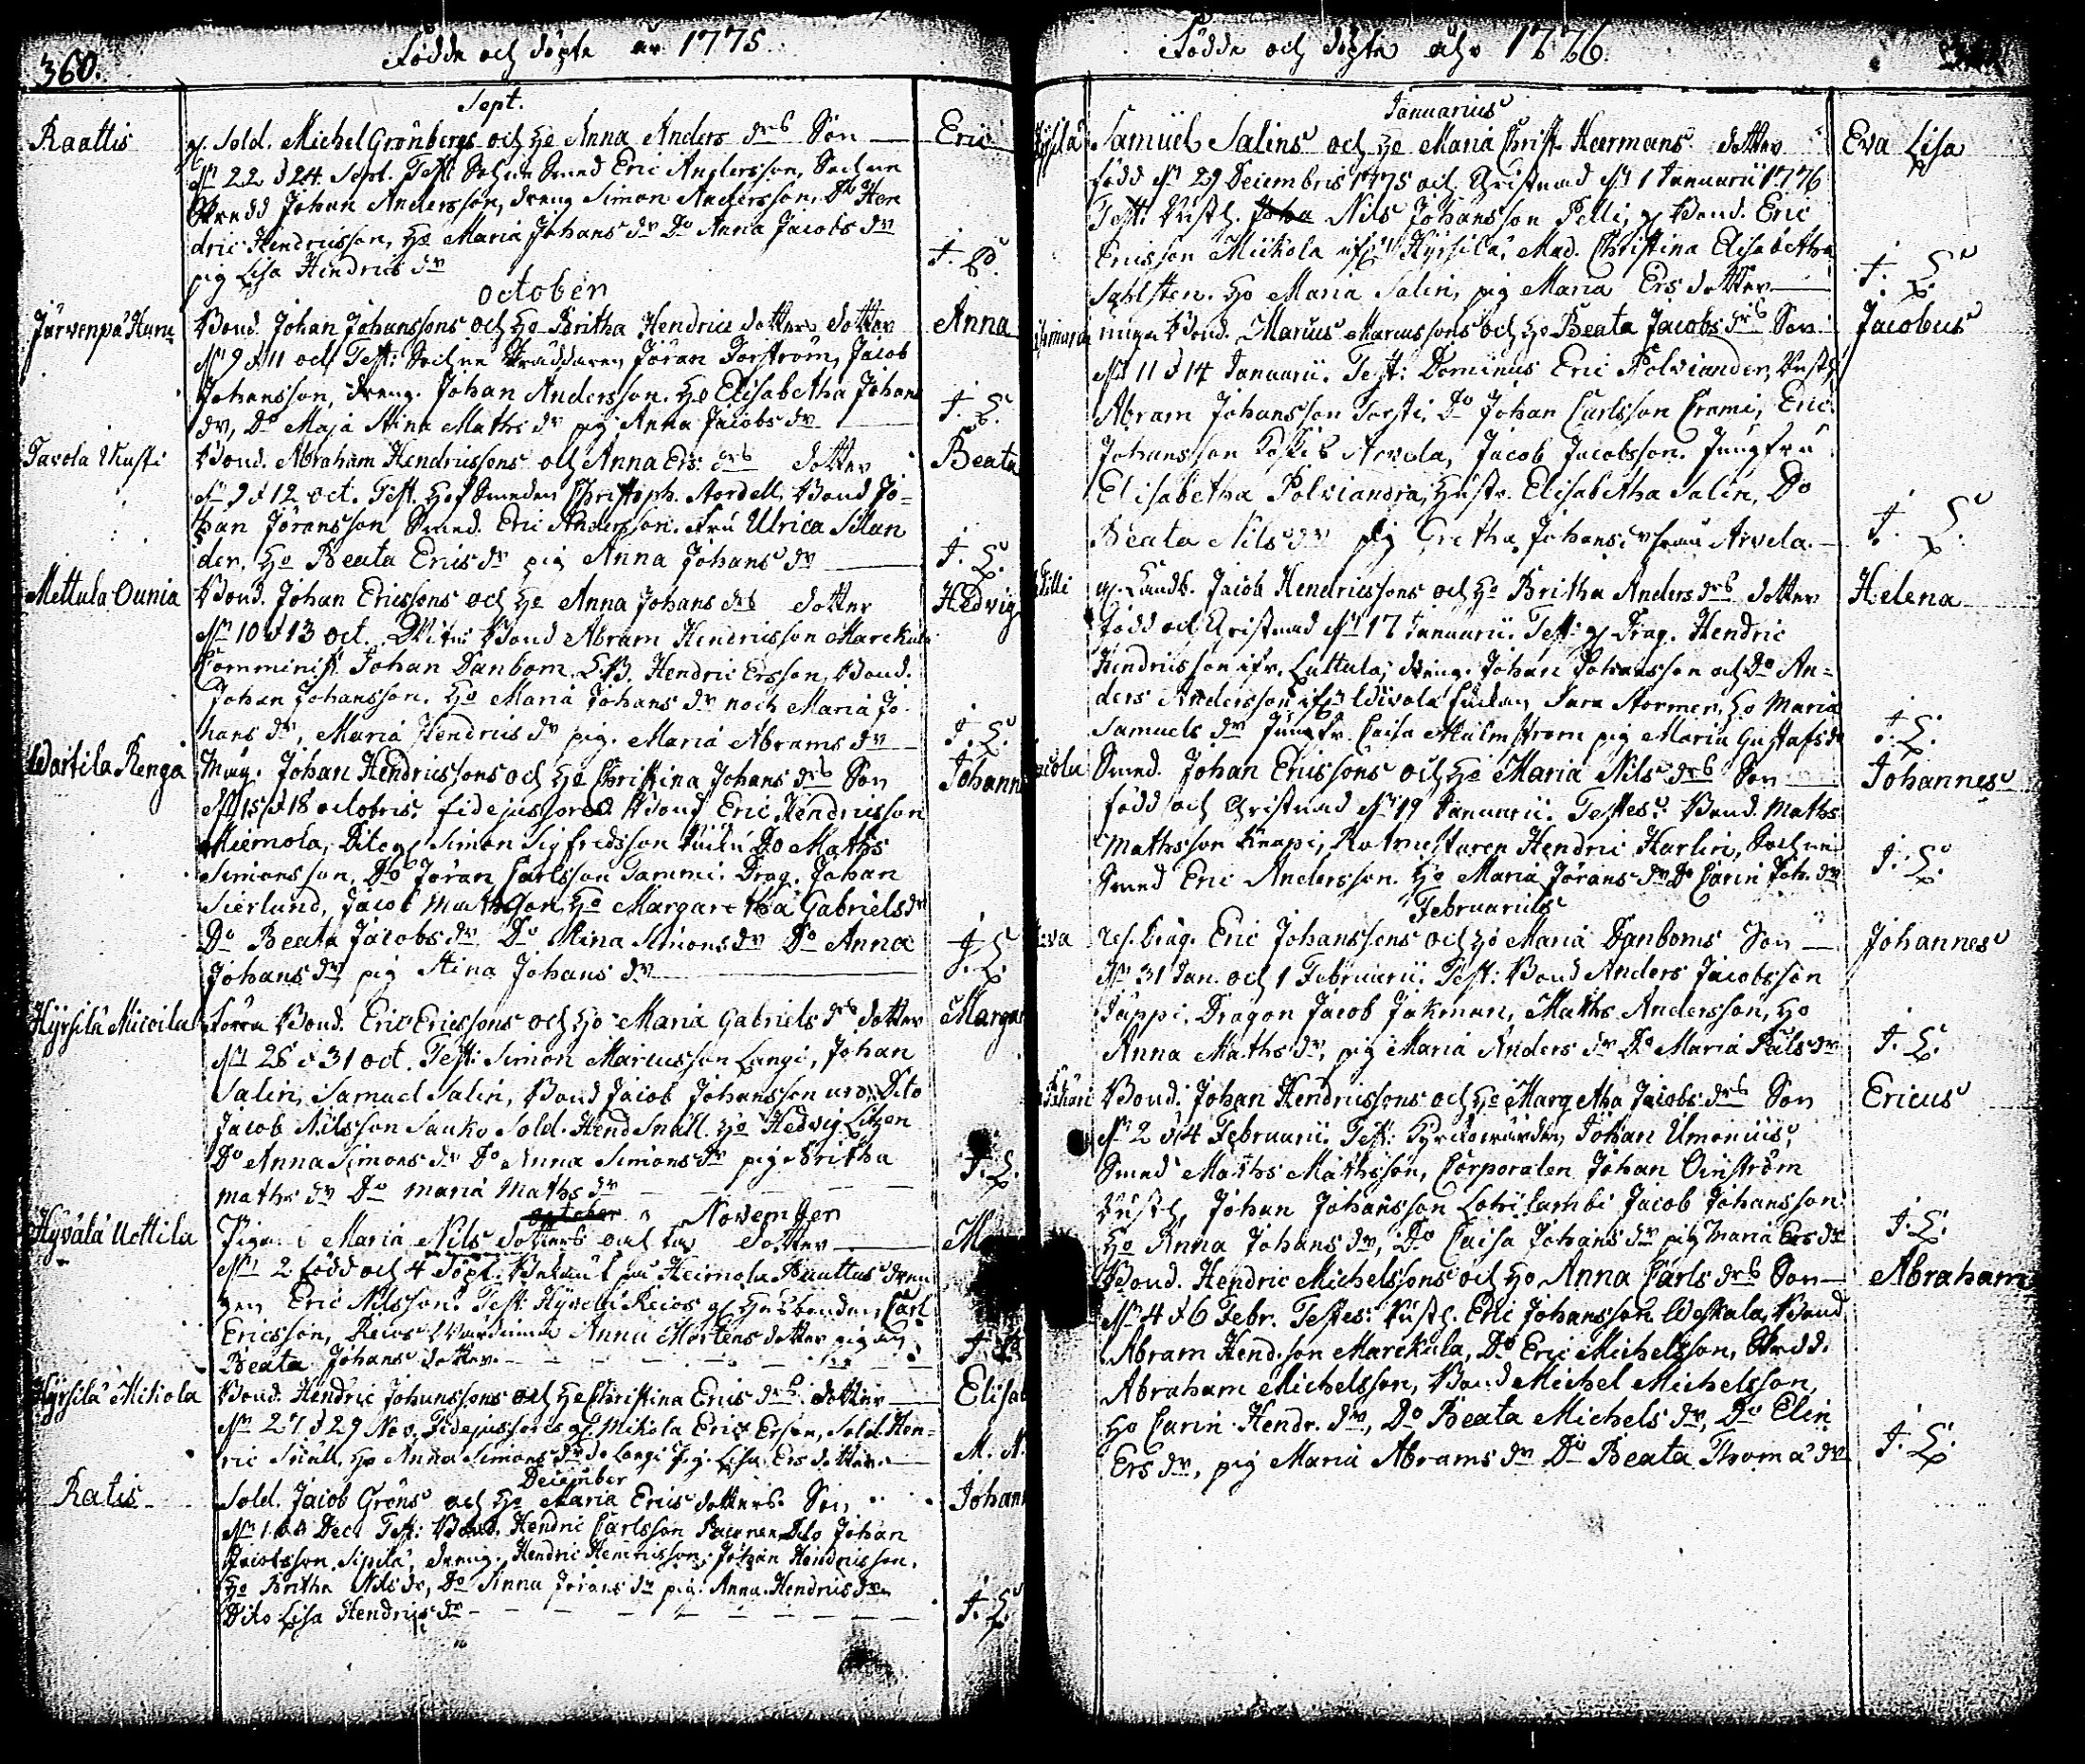 360.
Födde och döpte år 1775.
Sept.
Raattis gl. Sold. Michel Grönbergs och Ho Anna Anders drs Son — Eric
Nr 22 d 24 Sept. Test: Sochne Smed Eric Andersson, Sochne
Skredd Johan Andersson, dreng Simon Andersson, Do Hen
dric Hendricsson, Ho Maria Johans dr Do Anna Jacobs dr
pig Lisa Hindrics dr
October
Järvenpä Bond. Johan Johanssons och Ho Britha Hendrics dotters dotter Anna
9 d 11 oct Test: Sochne Skräddaren Jöran Torström, Jacob
Johansson, dreng. Johan Andersson. Ho Elisabetha Johans
dr, Do Maja Stina Maths dr pig Anna Jacobs dr — J. L.
Tavola Kusti Bond. Abraham Hendricssons och Anna Ers drs dotter Beata
9 d 12 oct. Test. Smeden Christoph. Nordell, Bond Jo-
han Jöransson Smed. Eric Andersson. Fru Ulrica Silan
der, Ho Beata Erics dr pig Anna Johans dr — J. L.
Mettula Ounia Bond. Johan Ericssons och Ho Anna Johans drs dotter Hedvig
10 d 13 oct. Bond Abram Hendricsson Marckula
Comminist. Johan Danbom Hendric Ersson, Bond.
Johan Johansson. Ho Maria Johans dr noch Maria Jo-
hans dr, Maria Hendrics dr pig. Maria Abrams dr — J. L.
Wartila Renga Johan Hendricssons och Ho Christina Johans drs Son Johann
15 d 18 octobris. fidejussores Bond Eric Hendricsson
Miemola, Dito Simon Sigfredsson Do Maths
Simonsson, Do Jöran Carlsson Tammi. Drag. Johan
Sierlund, Jacob Mathsson, Ho Margaretha Gabriels dr
Do Beata Jacobs dr Do Stina Simons dr Do Anna
Johans dr, pig Stina Johans dr — J. L.
Hyrsilä Micoila Bond. Eric Ericssons och Ho Maria Gabriels drs dotter Margar
28 d 31 oct. Test: Simon Marcusson Langi, Johan
Salin, Samuel Salin, Bond Jacob Johansson uro, Dito
Jacob Nilsson Sauko Sold. Hend Snäll. Ho Hedvig Litzen
Do Anna Simons dr Do Anna Simons dr pig Britha
Maths dr Do Maria Maths dr — J. L.
November
Hyvälä Uottila Pigan Maria Nils dotters dotter — M
2 född och 4 döpt. Heimola Puuttus dren
gen Eric Nilsson. Test: Hyvelä Reios gl Husbonden, Carl
Ericsson, Reios Värdinna Anna Mårtens dotter pigan
Beata Johans dotter. — J. L.
Hyrsilä Mikola Bond. Hendric Johanssons och Ho Christina Erics drs dotter — Elisab
27 d 29 Nov. Fidejussores gl. Mikola Eric Erson, Sold. Hen-
ric Snäll, Ho Anna Simons dr Langi Pig. Lisa Ers dotter. — M. N.
December
Ratis Sold. Jacob Gröns och Ho Maria Erics dotters Son Johann
Dec. Test: Bond. Hendric Carlsson Dito Johan
Jacobsson Sipilä, dreng. Hendric Hendricsson, Johan Hendricsson.
Ho Britha Nils dr, Do Anna Jörans dr pig. Anna Hendrics dr
Dito Lisa Hendrics dr — J. L.
Födde och döpte åhr 1776.
Januarius
Samuel Salins och Ho Maria Christ. Haermans dotter Eva Lisa
född 29 Decembris 1775 och Christnad 1 Januarii 1776
Test: Nils Johansson Pelli, gl Bond. Eric
Ericsson Miikola Hyrsilä, Mad. Christina Elisabetha
Sahlsten. Ho Maria Salin, pig Maria Ers dotter — J. L.
Bond. Marcus Marcussons och Ho Beata Jacobs drs Son Jacobus
11 d 14 Januarii. Test: Dominus Eric Polviander,
Abram Johansson Torsti, Do Johan Carlsson Crami, Eric
Johansson Arvela, Jacob Jacobsson. Jungfru
Elisabetha Polviandra, Hustr. Elisabetha Salin, Do
Beata Nils dr pig Gretha Johans dr från Arvela. — J. L.
Jacob Hendricssons och Ho Britha Anders drs dotter Helena
född och Christnad 17 Januarii. Test: gl Drag. Hendric
Hendricsson Luttula, dreng. Johan Johansson och Do An-
ders Andersson Sara Stormer, Ho Maria
Samuels dr Jungfr. Caisa Malmstrom pig Maria Gustafs dr J. L.
Smed. Johan Ericssons och Ho Maria Nils drs Son Johannes
född och Christnad 19 Januarii. Testes: Bond. Maths
Mathsson Knapi, Rotmestaren Hendric Harlin, Sochne
Smed Eric Andersson. Ho Maria Jörans dr Do Carin Joh. dr J. L.
Februarius
Drag. Eric Johanssons och Ho Maria Danboms Son — Johannes
31 Jan. och 1 Februarii. Test: Bond Anders Jacobsson
Juppi. Dragon Jacob Jakman, Maths Andersson, Ho
Anna Maths dr, pig Maria Anders dr Do Maria Påls dr J. L.
Bond. Johan Hendricssons och Ho Margetha Jacobs drs Son Ericus
2 d 4 Februarii. Test: Kyrckowärden Johan Umonius,
Smed Maths Mathsson, Corporalen Johan Oinström
Johan Johansson Jacob Johansson
Ho Anna Johans dr, Do Caisa Johans dr pig Maria Ers dr J. L.
Bond. Hendric Michelssons och Ho Anna Carls drs Son — Abraham
4 d 6 Febr. Testes: Eric Johansson Weskala, Bond
Abram Hend.son Marckula, Do Eric Michelsson, Skredd.
Abraham Michelsson, Bond Michel Michelsson,
Ho Carin Hendr. dr, Do Beata Michels dr, Do Elin
Ers dr, pig Maria Abrams dr Do Beata Thoma dr J. L.